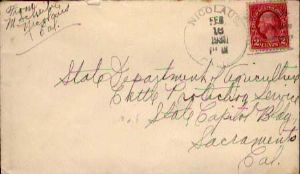 From
Nicolaus
Cal.
NICOLAUS
FEB
16
1931
P M
2 CENTS 2
State Department Agriculture
Cattle Protection Service
State Capitol Bldg
Sacramento
Cal.